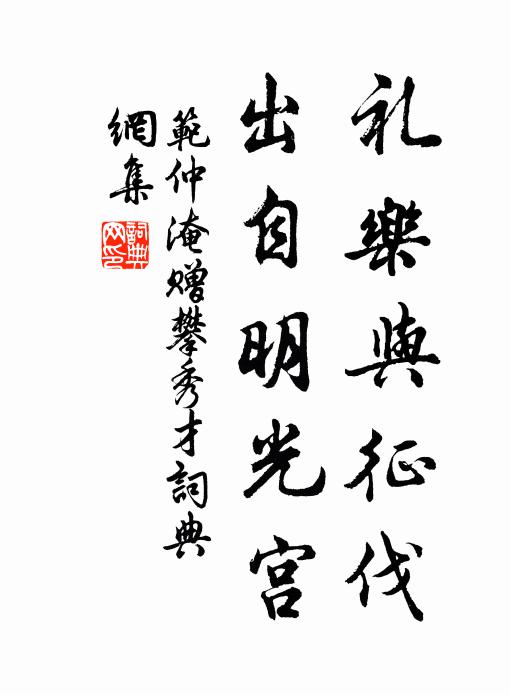 礼樂與征伐
出自明光宮
範仲淹贈攀秀才詞典
網集
詞典
网印